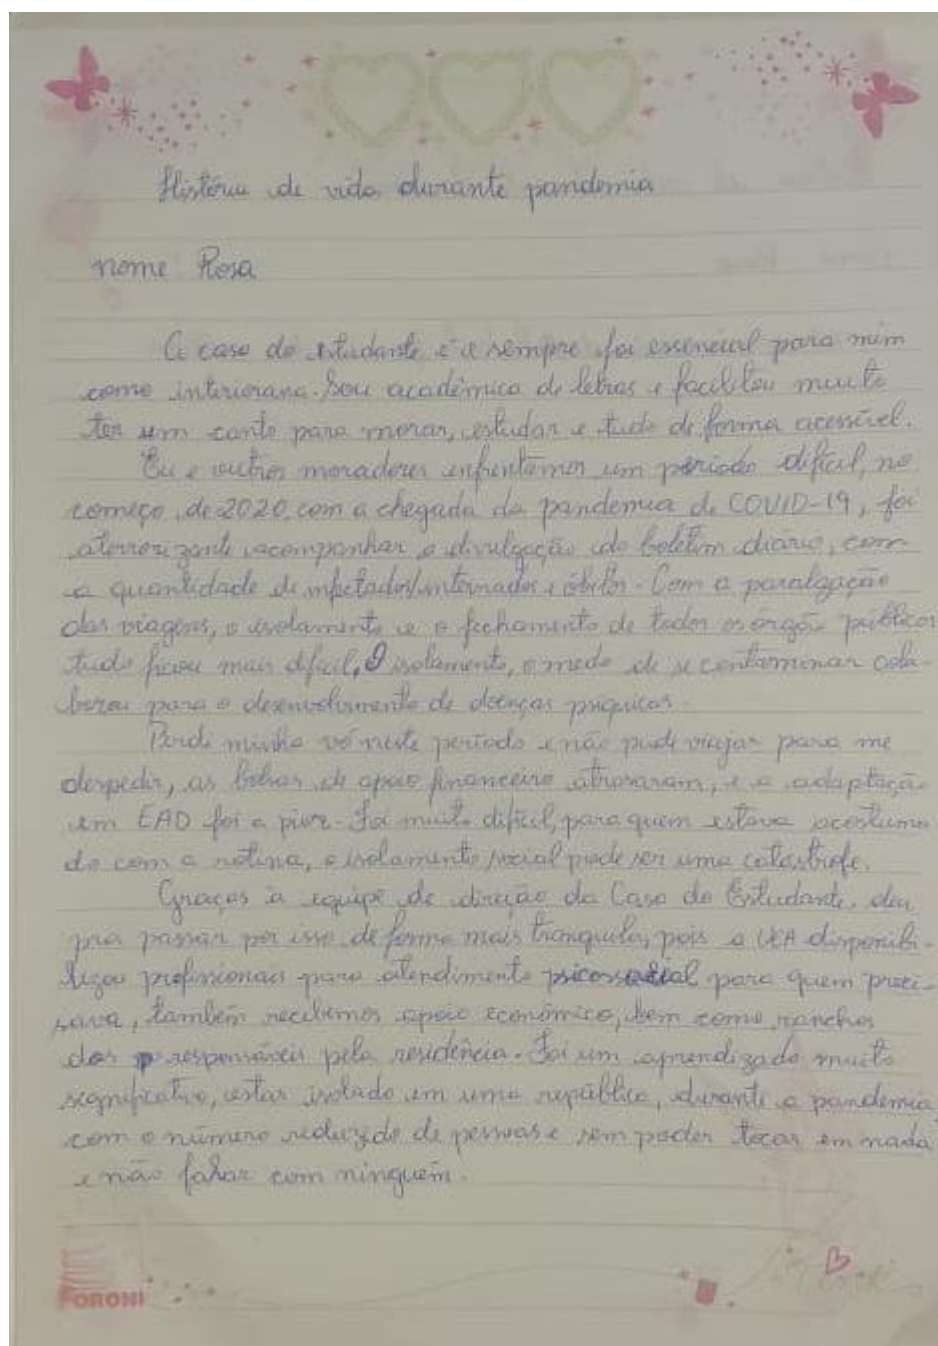 História de vida durante pandemia
nome Rosa
A casa do estudante é e sempre foi essencial para mim
como interiorana. Sou acadêmica de letras e facilitou muito
ter um canto para morar, estudar e tudo de forma acessível.
Eu e outros moradores enfrentamos um período difícil, no
começo de 2020 com a chegada da pandemia de COVID-19, foi
aterrorizante acompanhar a divulgação do boletim diário, com
a quantidade de infectados/internados e óbitos. Com a paralização
das viagens, o isolamento e o fechamento de todos os órgão públicos
tudo ficou mais difícil, O isolamento, o medo de se contaminar cola-
borou para o desenvolvimento de doenças psíquicas.
Perdi minha vó neste período e não pude viajar para me
despedir, as bolsas de apoio financeiro atrasaram, e a adaptação
em EAD foi a pior. Foi muito difícil, para quem estava acostuma
do com a rotina, o isolamento social pode ser uma catástrofe.
Graças à equipe de direção da Casa do Estudante, deu
pra passar por isso de forma mais tranquila, pois a UEA disponibi-
lizou profissionais para atendimento psicossocial para quem preci-
sava, também recebemos apoio econômico, bem como ranchos
dos responsáveis pela residência. Foi um aprendizado muito
significativo, estar isolado em uma república, durante a pandemia,
com o número reduzido de pessoas e sem poder tocar em nada
e não falar com ninguém.
FORONI